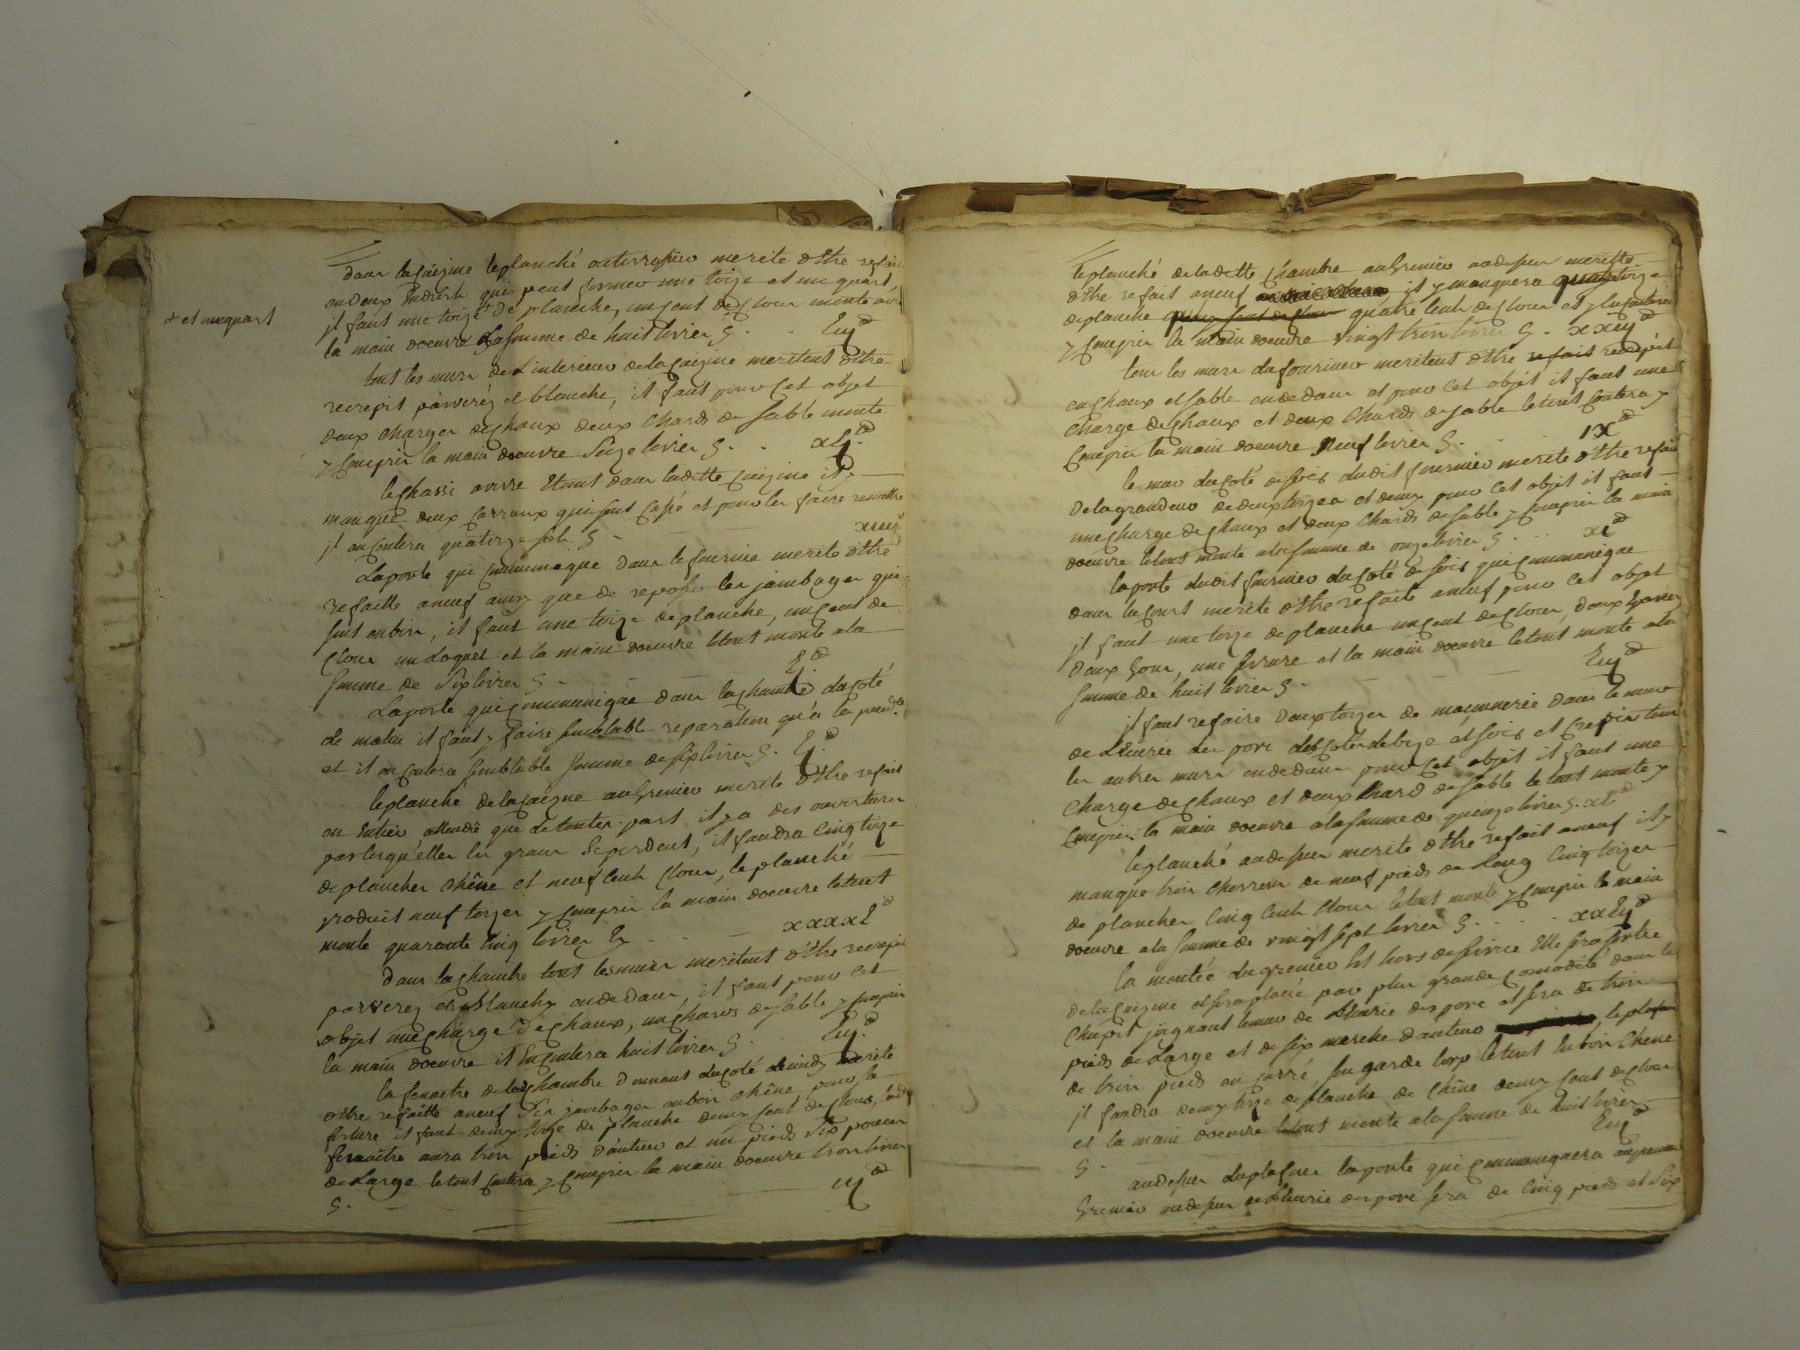 + et un quart
dans la cuizine le planché au terrassieu merite d'être refait
en deux endroit qui peut former une toize et un quart
il faut une toize + de planche, un cent de clour monte avec
la main doeuvre la somme de huit livres viij tt
tout les murs de l'interieur de la cuizine meritent d'être
recrepit parverés et blanchi, il faut pour cet objet
deux charges de chaux deux chards de sable monte
y compris la main doeuvre seize livres xvj tt
le chassi a verre etant dans ladette cuizine il y
manque deux carraux qui sont cassé et pour les faire remettre
il en coutera quatorze sols xiiij s
La porte qui communique dans le fournier merite d'être
refaitte a neuf ainsi que de reposer les jambages qui
sont en bois, il faut une toize de planche, un cent de
clour un loquet et la main doeuvre le tout monte a la
somme de six livres vj tt
La porte qui communique dans la chambre du coté
de matin il faut y faire semblable reparation qu'a la precedte
et il en coutera semblable somme de six livres vj tt
le planché de la cuizine au grenier merite d'être refait
en entier attendu que de toutes part il y a des ouvertures
par lesqu'elles les grains se perdent, il faudra cinq toize
de plancher chêne et neuf cent clour, le planché
produit neuf toizes y compris la main doeuvre le tout
monte quarante cinq livres xxxxv tt
dans la chambre tout les murs meritent d'être recrepit
parverez et blanchy en dedans, il faut pour cet
objet une charge de chaux, un chards de sable y compris
la main doeuvre il en coutera huit livres viij tt
la fenaitre de la chambre donnant du coté de midy merite
d'être refaitte a neuf les jambages en bois chêne pour sa
ferture il faut demy toize de planche demy cent de clour, lad.
fenaitre aura trois pieds d'auteur et un pieds six pouces
de large le tout coutera y compris la main doeuvre trois livres
iij tt
le planché de ladette chambre au grenier au dessus meritte
d'être refait a neuf il y manquera quatre toize
de planche quatre cent de clour et y en coutera
y compris la main doeuvre vingt trois livres xxiij tt
tous les murs du fournier meritent d'être recrepit
en chaux et sable en dedans et pour cet objet il faut une
charge de chaux et deux chards de sable le tout coutera y
compris la main doeuvre neuf livres ix tt
le mur du coté de soir dudit fournier merite d'être refait
de la grandeur de deux toizes et demy pour cet objet il faut
une charge de chaux et deux chards de sable y compris la main
doeuvre le tout monte a la somme de onze livres xi tt
la porte dudit fournier du coté de soir qui communique
dans la cour merite d'être refaite a neuf pour cet objet
il faut une toize de planche un cent de clour, deux
deux gons, une serrure et la main doeuvre le tout monte a la
somme de huit livres viij tt
il faut refaire deux toizes de maçonnerie dans le mur
de l'écurie des porc des cotés de bize et soir et crepir tous
les autres murs en dedans pour cet objet il faut une
charge de chaux et deux chard de sable le tout monte y
compris la main doeuvre a la somme de quinze livres xv tt
le planché au dessus merite d'être refait a neuf il y
manque trois chevrons de neuf pieds de long cinq toizes
de plancher cinq cent clour le tout monte y compris la main
doeuvre a la somme de vingt sept livres xxvij tt
la montée du grenier est hors de service elle sera sortie
de la cuizine et sera placée pour plus grande comodité dans le
chapit joignant le mur de l'écurie des porc et sera de trois
pieds de large et de six marche d'auteur le plafon
de trois pieds en carré, un garde corp le tout en bois chene
il faudra demy toize de planche de chêne demy cent de clour
et la main doeuvre le tout monte a la somme de huit livres
viij tt
au dessus du plafon la porte qui communiquera au premier
grenier au dessus de l'écurie des porc sera de cinq pieds et six